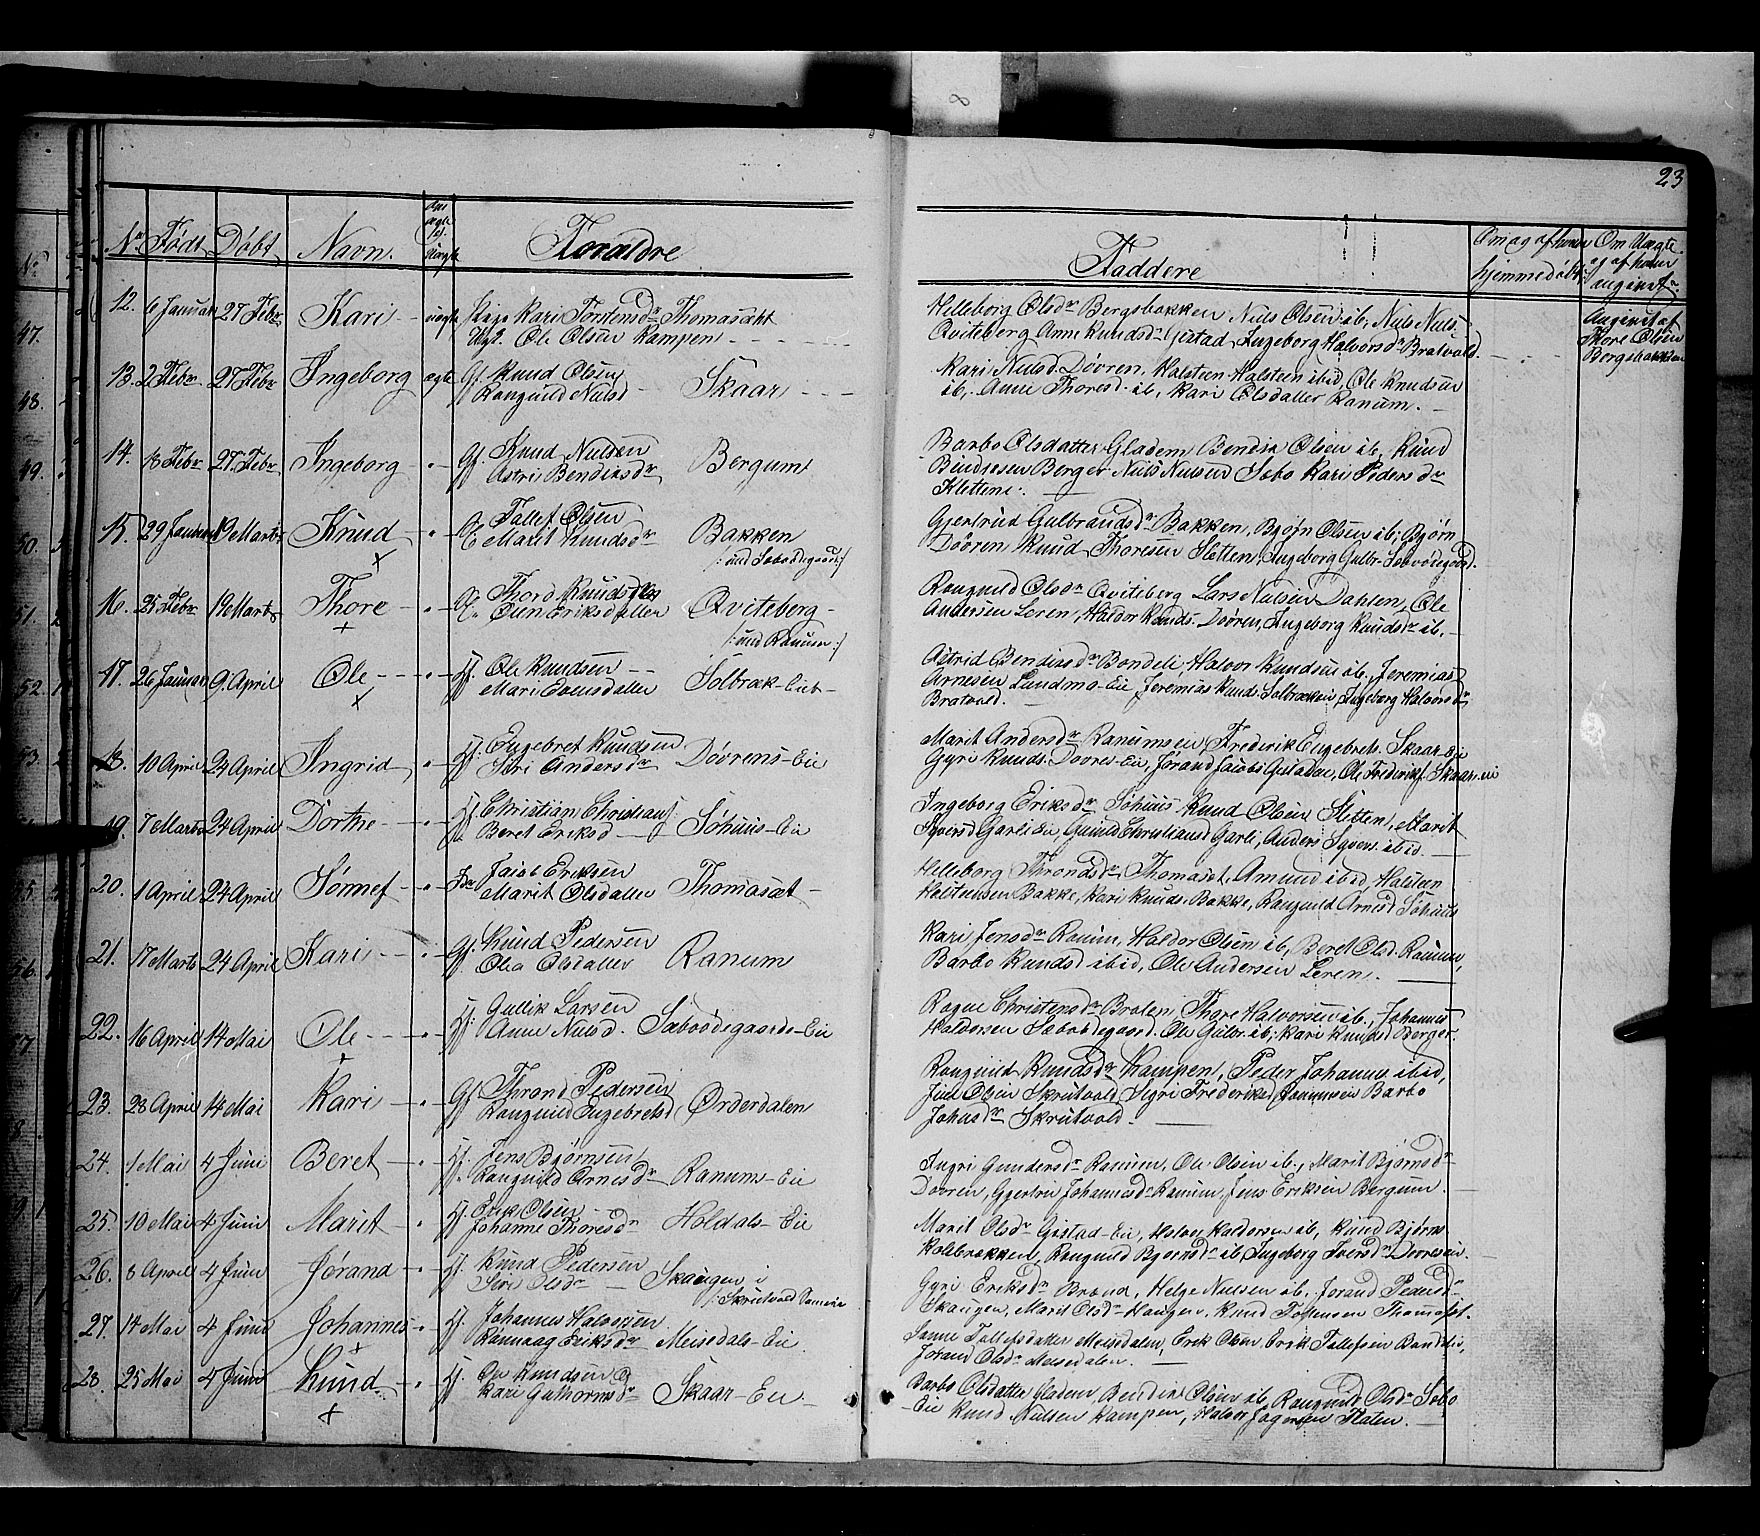 8
23
No Født Døbt Navn Forældre
Faddere
hjemmedøbt
Om Uægte
12. 6 Januar 27 Febr Kari uægte Pige Kari Torstensdr Thomasæt
Ole Olsen Kampen
Helleborg Olsdr Bergsbakken Niels Olsen ib, Niels Niels.
Qviteberg Anne Knudsdr Gistad, Ingeborg Halvorsdr Bratvold
Angivet af
Thore Olsen
Bergsbakken
13. 2 Febr 27 Febr Ingeborg ægte Gf. Knud Olsen
Rangnild Nielsd Skaar
Kari Nielsd. Døvren, Halsteen Halsteen ibid, Ole Knudsen
ib, Anne Thoresd. ib, Kari Olsdatter Ranum.
14. 8 Febr 27 Febr Ingeborg Gf. Knud Nielsen
Astri Bendixsdr Bergum
Barbo Olsdatter Gladem Bendix Olsen ib, Knud
Berger Niels Nielsen Søbo Kari Pedersdr
Klettene
15. 29 Januar 19 Marts Knud Tollef Olsen
Marit Knudsdr Bakken
Gjertrud Gulbrandsdr Bakken, Bjørn Olsen ib; Bjørn
Døvren Knud Thoresen Sletten, Ingeborg Gulbr.
16. 25 Febr 19 Marts Thore Thord Knuds
Eriksdatter Qviteberg
/: und Ranum :/
Rangnild Olsdr Qviteberg Lars Nielsen Dahlen, Ole
Andersen Leren, Haldor Knuds. Døvren, Ingeborg Knudsdr ib.
17. 26 Januar 9 April Ole Ole Knudsen
Mari Evensdatter Solbræk-Eiet
Astrid Bendixsdr Bondeli, Halvor Knudsen ib, Jeremias
Arnesen Lundmo-Eie, Jeremias Knuds. Solbrækken, Ingeborg Halvorsdr
Bratvold.
18. 10 April 24 April Ingrid Engebret Knudsen
Siri Andersdr Døvrens-Eie
Marit Andersdr Ranumseie, Frederik Engebrets. Skaar-Eie
Gyri Knuds. Døvres-Eie, Jørand Jacobs Gistadeie, Ole Frederiks. Skaar-eie
19. 7 Marts 24 April Dorthe Christian Christians.
Beret Eriksd Søhuus-Eie
Ingeborg Eriksdr Søhuus Knud Olsen Sletten, Marit
Garli Eie, Gunild Christiansd Garli, Anders Syvers. ibid.
20. 1 April 24 April Sønnef Jacob Eriksen
Marit Olsdatter Thomasæt
Helleborg Throndsdr Thomasæt, Amund ibid, Halsteen
Halsteensen Bakke, Kari Knuds. Bakke, Rangnild Arnesd Søhuus
21. 17 Marts 24 April Kari Gf. Knud Pedersen
Olia Olsdatter Ranum
Kari Jensdr Ranum, Haldor Olsen ib, Beret Olsd. Ranum,
Barbo Knudsd ibid, Ole Andersen Leren.
22. 16 April 14 Mai Ole Gullik Larsen
Anne Nielsd. Sæbodegaards-Eie
Ragne Christensdr Bralen, Thore Halvorsen ib., Johannes
Haldorsen Sæbodegaard. Ole Gulbr. ib, Kari Knudsd Berger.
23. 28 April 14 Mai Kari Gf. Thrond Pedersen
Rangnild Ingebretsd Ørderdalen
Rangnild Knudsdr Kampen, Peder Johannes ibid,
Olsen Skrutvold, Sigri Frederiksd, Barbo
Johnsdr Skrutvold.
24. 1 Mai 4 Juni Beret Jens Bjørnsen
Rangnild Arnesdr Ranum-Eie
Ingri Gundersdr Ranum, Ole Olsen ib., Marit Bjørnsdr
Dovren, Gjertru Johannesdr Ranum, Jens Eriksen Bergum.
25. 10 Mai 4 Juni Marit Erik Olsen
Johanne Thoresdr Holdals-Eie
Marit Olsdr Gistad-Eie, Halvor Haldorsen ib, Knud Bjørns
Kolbrækken, Rangnild Bjørnsdr ib, Ingeborg Iversdr Dovreseie.
26. 8 April 4 Juni Jørand Knud Pedersen
Siri Olsdr Skaugen i
/: Skrutvold
Gyri Eriksdr Brænd, Helge Nielsen ib, Jørand Pedersdr
Skaugen, Marit Olsdr Haugen, Knud Tostensen Thomaset
27. 14 Mai 4 Juni Johannes Johannes Halvorsen
Rannaug Eriksdr Meisedals-Eie
Sanne Tollefsdatter Meisedalen, Erik Olsen, Erik Tollefsen Bondelie,
Jørand Olsdr Meisedalen.
28. 25 Mai 4 Juni Knud Ole Knudsen
Kari Guthormsdr Skaar-Eie
Barbo Olsdatter Gladem, Bendix Olsen ib, Rangnild Olsdr Søbo
Eie Knud Nielsen Kampen, Halvor Flaten.